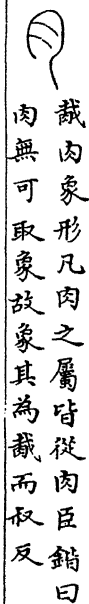 胾肉象形凡肉之屬皆從肉臣鍇曰
肉無可取象故象其為胾而叔反